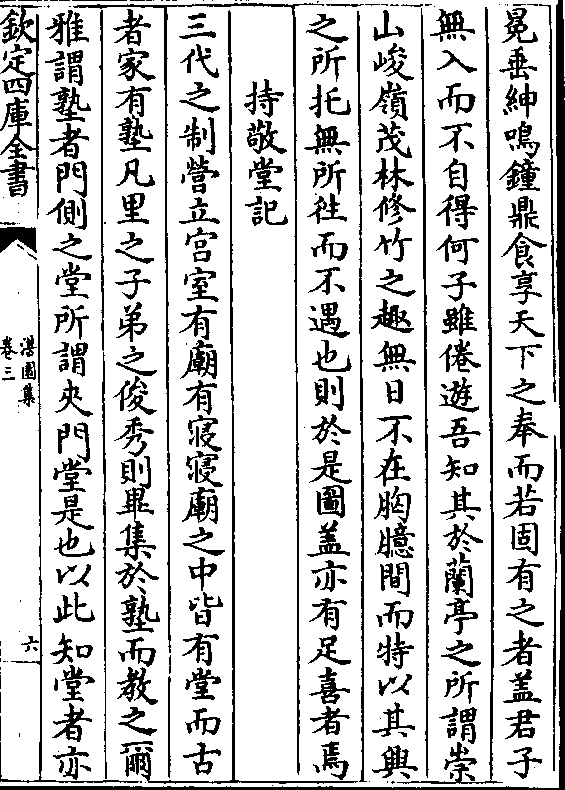 冕垂紳鳴鐘鼎食享天下之奉而若固有之者盖君子
無入而不自得何子雖倦遊吾知其於蘭亭之所謂崇
山峻嶺茂林修竹之趣無日不在胸臆間而特以其興
之所托無所徃而不遇也則於是圖盖亦有足喜者焉
持敬堂記
三代之制營立宫室有廟有寢寢廟之中皆有堂而古
者家有塾凡里之子弟之俊秀則畢集於塾而教之爾
雅謂塾者門側之堂所謂夾門堂是也以此知堂者亦
欽定四庫全書
卷三
六